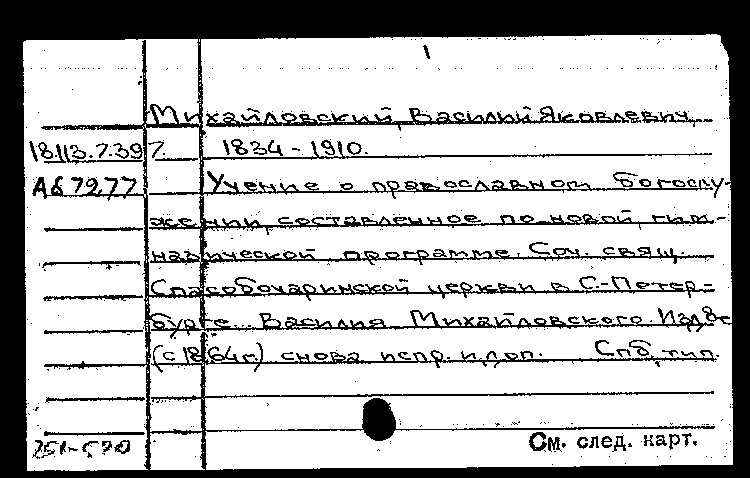 1
Михайловский, Василий Яковлевич,
18.113.7.397. 1834 - 1910.
А67977 Учение о православном богослу-
жении, составленное по новой гим-
назической программе. Соч. свящ.
Спасобочаринской церкви в С.-Петер-
бурге Василия Михайловского. Изд. 8е
(с 1864г.) снова испр. и доп. Спб, тип.
251-570
См. след. карт.